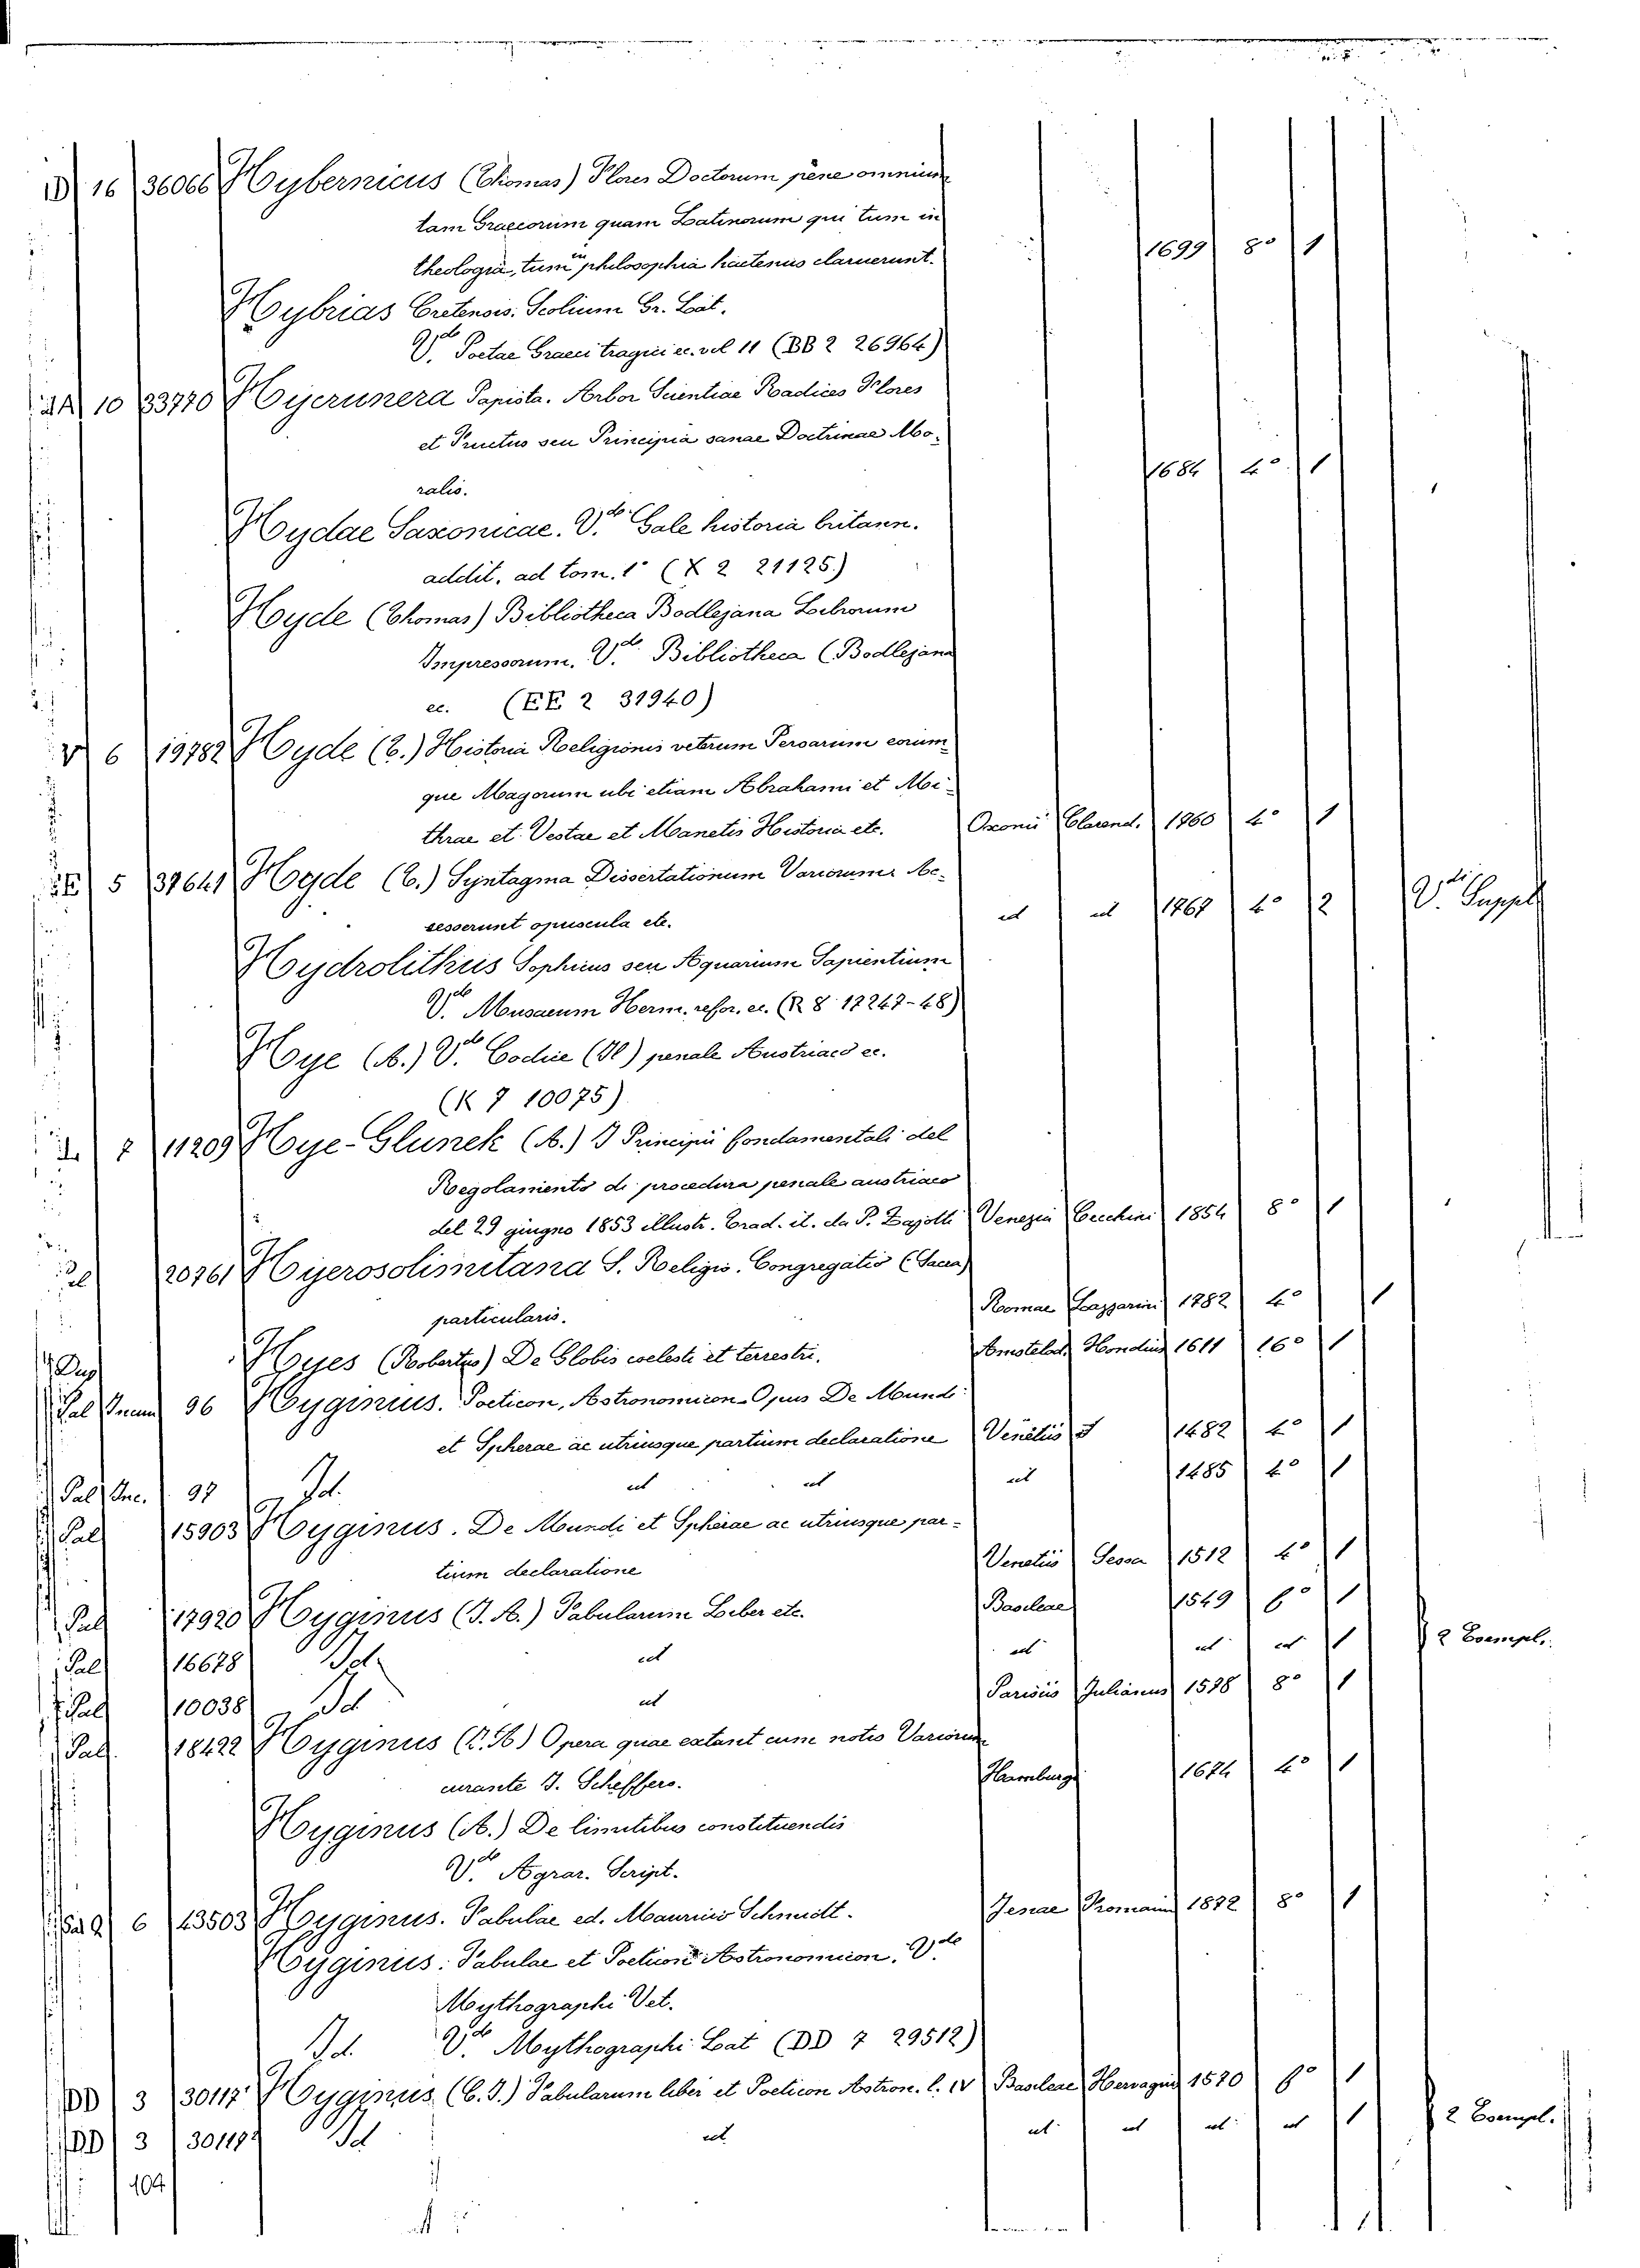 16 36066 Hybernicus (Thomas) Flores Doctorum pene omnium
tam Graecorum quam Latinorum qui tum in
theologia, tum in philosophia hactenus claruerunt. 1699 8° 1
Hybrias Cretensis. Scolium Gr. Lat.
V.de Poetae Graeci tragici ec. vol 11 (BB 2 26964)
10 33770 Hyerunera Papista. Arbor Scientiae Radices Flores
et Fructus seu Principia sanae Doctrinae Mo-
ralis. 1684 4° 1
Hydae Saxonicae. V.de Gale historia britann.
addit. ad tom. 1° (X 2 21125)
Hyde (Thomas) Bibliotheca Bodlejana Librorum
Impressorum. V.de Bibliotheca (Bodlejana
ec. (EE 2 31940)
V 6 19782 Hyde (T.) Historia Religionis veterum Persarum eorum
que Magorum ubi etiam Abrahami et Mi-
thrae et Vestae et Manetis Historia etc. Oxonii Clarend. 1760 4° 1
5 37641 Hyde (T.) Syntagma Dissertationum Variorum Ac-
cesserunt opuscula etc. ut ut 1767 4° 2 V.de Suppl
Hydrolithus Sophicus seu Aquarium Sapientium
V.de Musaeum Herm. refor. ec. (R 8 17247-48)
Hye (A.) V.de Codice (Il) penale Austriaco ec.
(K 7 10075)
7 11209 Hye-Glunek (A.) I Principii fondamentali del
Regolamento di procedura penale austriaco
del 29 giugno 1853 illustr. Trad. it. da P. Zajotti Venezia Cecchini 1854 8° 1
20761 Hyerosolimitana S. Religio. Congregatio (Sacra)
particularis. Romae Lazzarini 1782 4° 1
Dup Hyes (Robertus) De Globis coelesti et terrestri. Amstelod. Hondius 1611 16° 1
Pal Incun 96 Hyginius. Poeticon, Astronomicon-Opus De Mundi
et Spherae ac utriusque partium declaratione Venetiis 1482 4° 1
Pal Inc. 97 Id. ut ut ut 1485 4° 1
Pal 15903 Hyginus. De Mundi et Spherae ac utriusque par-
tium declaratione Venetiis Sessa 1512 4° 1
Pal 17920 Hyginus (J. A.) Fabularum Liber etc. Basileae 1549 f° 1
Pal 16678 Id. ut ut ut ut 1 2 Esempl.
Pal 10038 Id ut Parisiis Julianus 1578 8° 1
Pal. 18422 Hyginus Opera quae extant cum notis Variorum
curante J. Scheffero. Hamburgi 1674 4° 1
Hyginus (A.) De limitibus constituendis
V.de Agrar. Script.
6 43503 Hyginus. Fabulae ed. Mauricius Schmidt. Jenae 1872 8° 1
Hyginus: Fabulae et Poeticon Astronomicon. V.de
Mythographi Vet.
Id. V.de Mythographi Lat (DD 7 29512)
DD 3 30117 Hyginus (C. J.) Fabularum liber et Poeticon Astron. l. IV Basileae Hervagius 1570 f° 1
DD 3 30119 Id ut ut ut ut ut 1 2 Esempl.
104